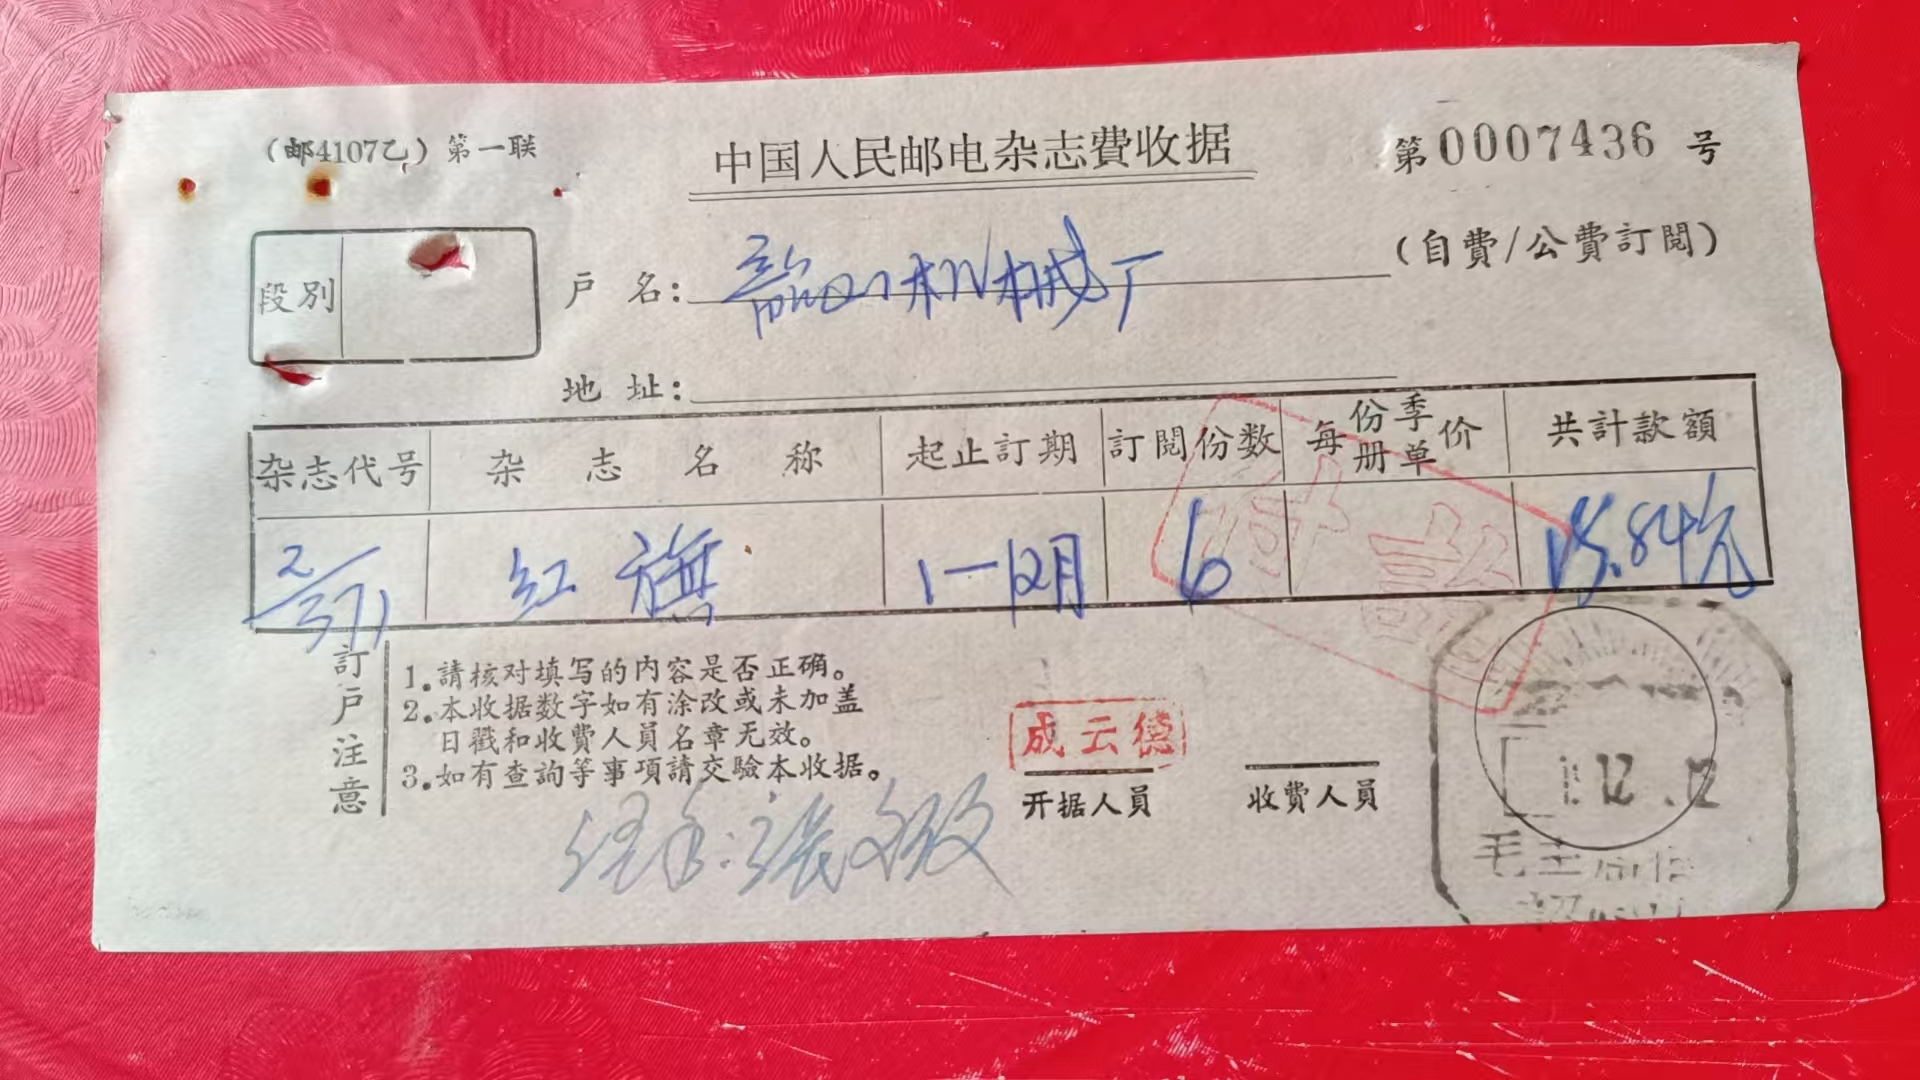 （邮4107乙）第一联
中国人民邮电杂志費收据
第0007436号
（自費/公費訂閱）
段别
户名：韶山机械厂
地址：
杂志代号 杂志名称 起止訂期 訂閱份数 每份季册单价 共計款額
2/371 红旗 1—12月 6 15.84元
訂户注意
1.請核对填写的内容是否正确。
2.本收据数字如有涂改或未加盖
日戳和收費人員名章无效。
3.如有查詢等事項請交驗本收据。
成云德
开据人員
收費人員
经手：张
12.12
毛主席